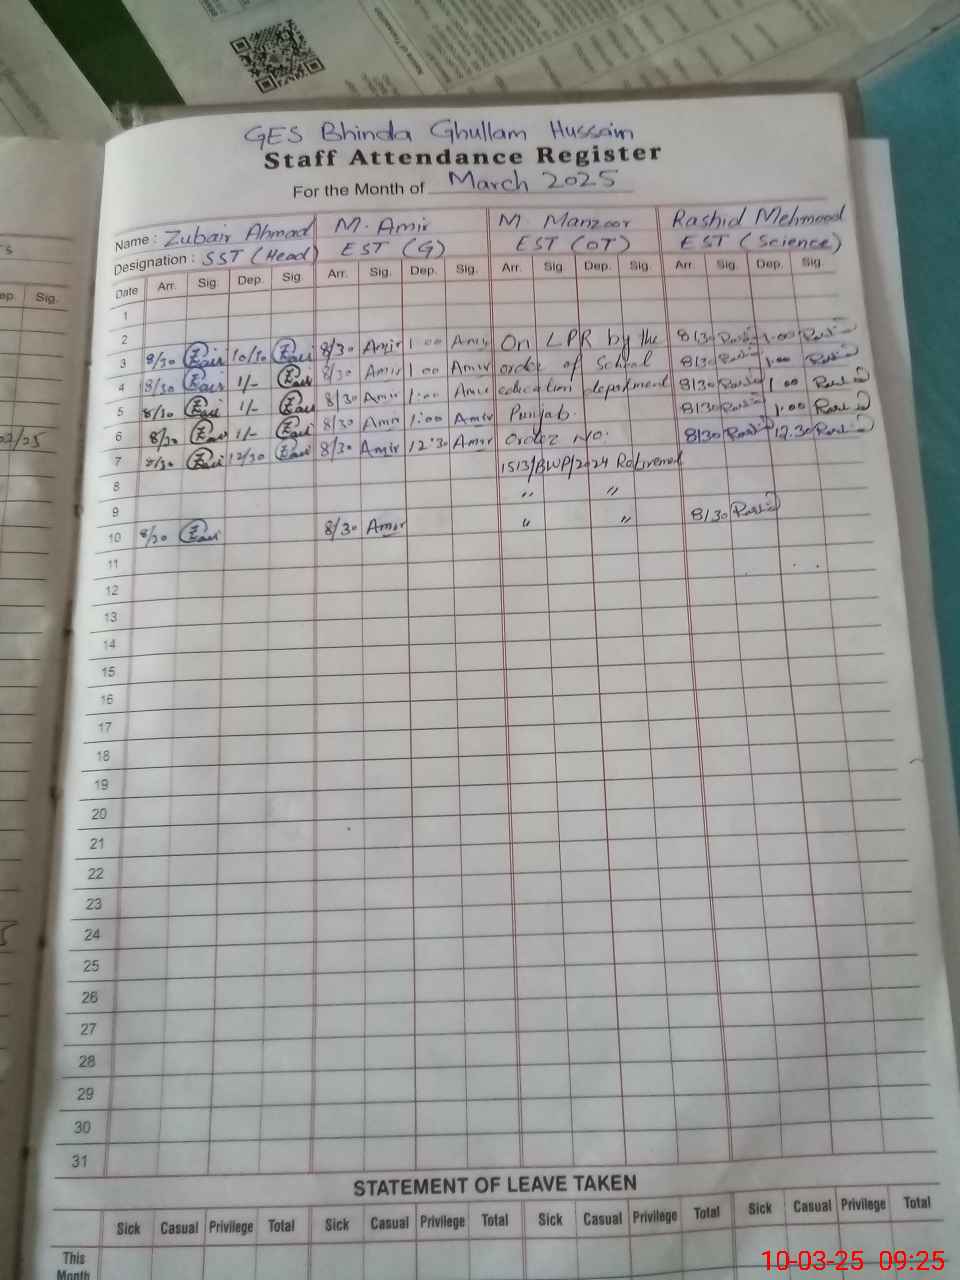 GES Bhinda Ghullam Hussain
Staff Attendance Register
For the Month of March 2025
Name : Zubair Ahmad M. Amir M. Manzoor Rashid Mehmood
Designation : SST (Head) EST (G) EST (OT) EST (Science)
Date Arr. Sig. Dep. Sig. Arr. Sig. Dep. Sig. Arr. Sig Dep. Sig. Arr. Sig. Dep. Sig.
1
2
3 8/30 10/30 8/30 Amir 1 00 Amir On LPR by the 8/30 1.00
4 8/30 1/- 8/30 Amir 1 00 Amir order of School 8/30 1.00
5 8/30 1/- 8/30 Amir 1:00 Amir education department 8/30 1 00
6 8/30 1/- 8/30 Amir 1:00 Amir Punjab. 8/30 1.00
7 8/30 12/30 8/30 Amir 12:30 Amir Order No. 8/30 12.30
8 1513/BWP/2024 Retirement
9 " "
10 8/30 8/30 Amir " " 8/30
11
12
13
14
15
16
17
18
19
20
21
22
23
24
25
26
27
28
29
30
31
STATEMENT OF LEAVE TAKEN
Sick Casual Privilege Total Sick Casual Privilege Total Sick Casual Privilege Total Sick Casual Privilege Total
This
Month
10-03-25 09:25
ep. Sig.